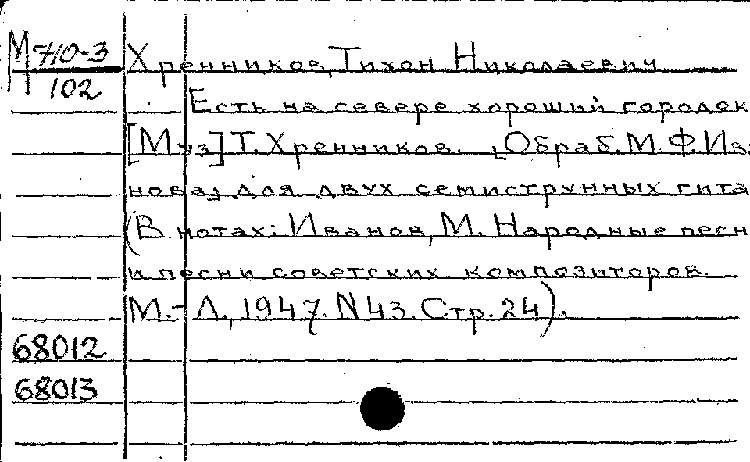 М 710-3 Хренников, Тихон Николаевич
П 102 Есть на севере хороший городок
[Муз] Т. Хренников. [Обраб. М. Ф. Ива
нова] для двух семиструнных гита
(В нотах: Иванов, М. Народные песн
и песни советских композиторов.
М.-Л., 1947. N 43. Стр. 24).
68012
68013